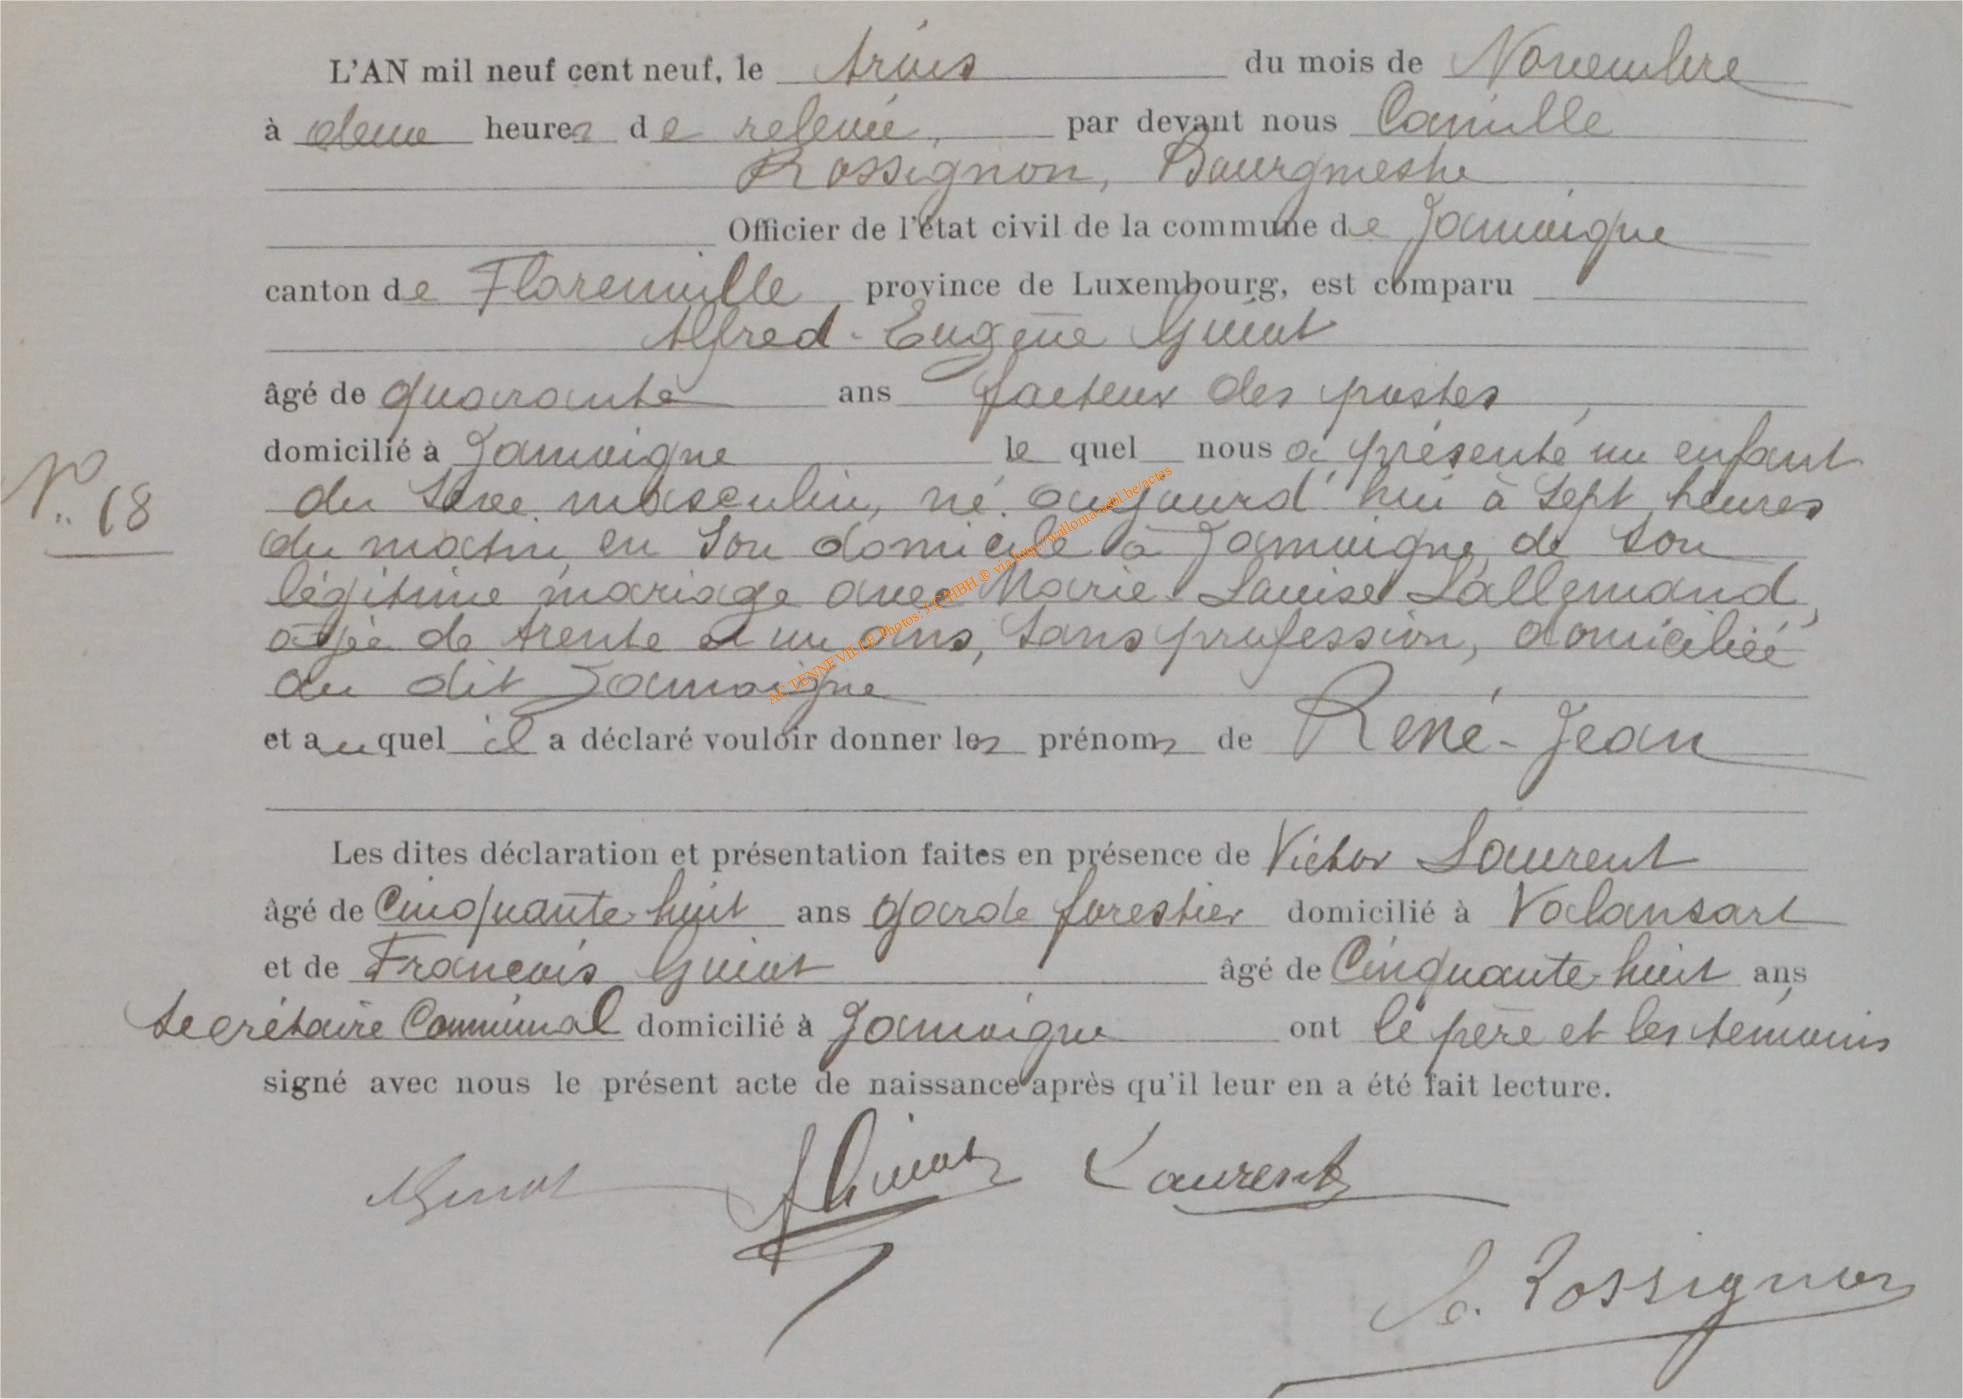 L'AN mil neuf cent neuf, le trois du mois de Novembre
à deux heures de relevée, par devant nous Camille
Rossignon, Bourgmestre
Officier de l'état civil de la commune de Jamoigne
canton de Florenville, province de Luxembourg, est comparu
Alfred-Eugène Guiot
âgé de quarante ans facteur des postes,
domicilié à Jamoigne le quel nous a présenté un enfant
N° 68
du sexe masculin, né aujourd'hui à sept heures
du matin en son domicile à Jamoigne, de son
légitime mariage avec Marie Louise Lallemand,
âgée de trente et un ans, sans profession, domiciliée
au dit Jamoigne
et au quel il a déclaré vouloir donner les prénoms de René-Jean
Les dites déclaration et présentation faites en présence de Victor Laurent
âgé de Cinquante-huit ans garde forestier domicilié à Valansart
et de François Guiot âgé de Cinquante-huit ans
secrétaire Communal domicilié à Jamoigne ont le père et les témoins
signé avec nous le présent acte de naissance après qu'il leur en a été fait lecture.
AGuiot FGuiot Laurent
C. Rossignon